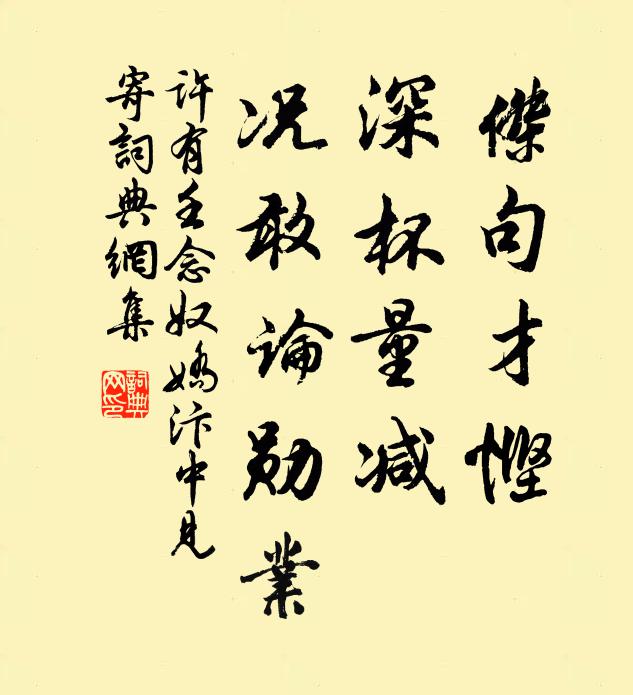 傑句才慳
深杯量减
况敢論勛業
許有壬念奴嬌汴中見
寄詞典網集
詞典网印